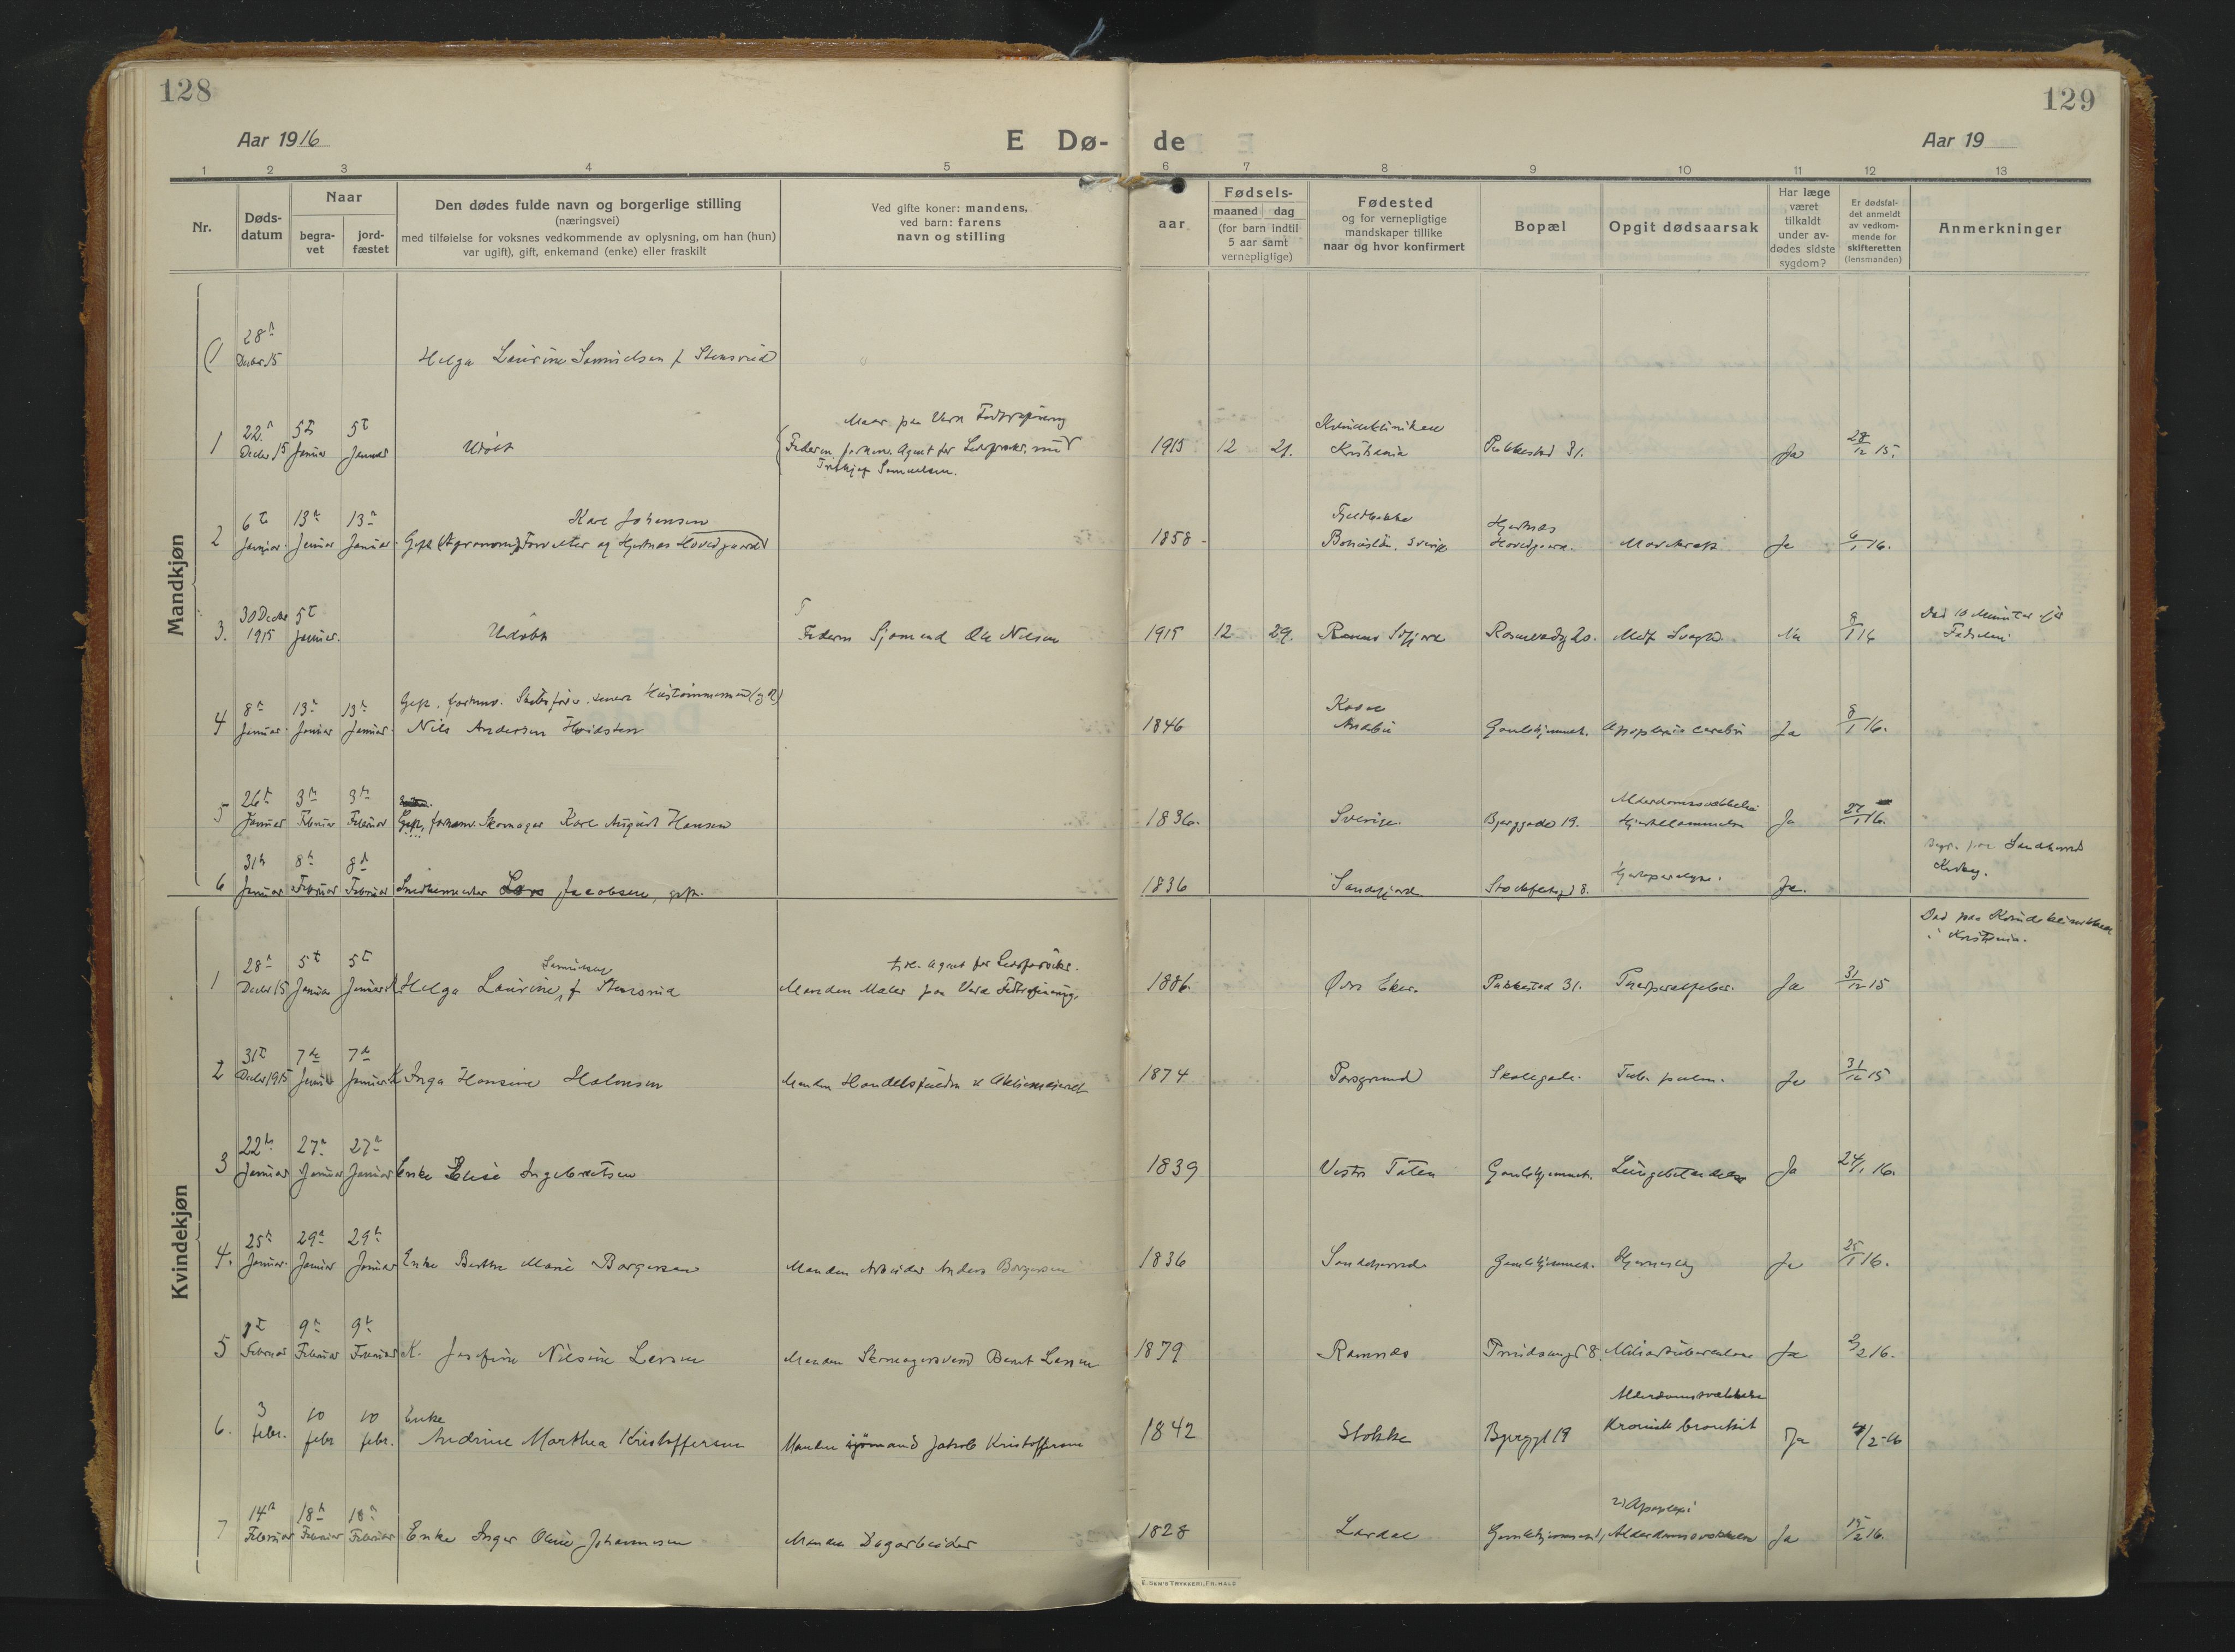 128
129
Aar 1916
E Dø-
de
Aar 19
1 2 3 4 5 6 7 8 9 10 11 12 13
Nr.
Døds-
datum
Naar
begra-
vet
jord-
fæstet
Den dødes fulde navn og borgerlige stilling
(næringsvei)
med tilføielse for voksnes vedkommende av oplysning, om han (hun)
var ugift), gift, enkemand (enke) eller fraskilt
Ved gifte koner: mandens,
ved barn: farens
navn og stilling
aar
Fødsels-
maaned dag
(for barn indtil
5 aar samt
vernepligtige)
Fødested
og for vernepligtige
mandskaper tillike
naar og hvor konfirmert
Bopæl
Opgit dødsaarsak
Har læge
været
tilkaldt
under av-
dødes sidste
sygdom?
Er dødsfal-
det anmeldt
av vedkom-
mende for
skifteretten
(lensmanden)
Anmerkninger
Mandkjøn
(1 28 Decbr. 15 Helga Laurine Samuelsen f Stensrud
Maler paa Vera Fedtraffinering
1 22 Decbr 15 5t Januar 5t Januar Udøbt Faderen, forhenv. Agent for Livsforsikr.
Samuelsen.
1915 12 21. Kvindekliniken
Kristiania Pukkestad 31. Ja 28/12 15.
Karl Johansen
2 6t Januar 13 Januar 13 Januar Gift (Agronom) Forvalter og Hjertnæs Hovedgaard
1858 Bohuslän, Sverige Hjertnæs
Hovedgaard. Mavekræft Ja 6/1 16.
3. 30 Decbr 1915 5t Januar. Udøbt Faderen Sjømand Ole Nilsen
1915 12 29. Rosenvoldgd 20. Medf. Svagh. 8/1 16 Død 10 Minutter efter
Fødselen
Gift. forhenv.
4 8 Januar 13 Januar 13 Januar Nils Andersen Hoidsten
1846 Kodal
Andebu Gamlehjemmet. Apoplexia cerebri Ja 8/1 16.
5 26 Januar 3 Februar 3 Februar Gift, forhenv. Skomager Karl August Hansen
1836. Sverige. Bjerggade 19. Alderdomssvækkelse
Hjertelammelse Ja 27/1 16.
6 31 Januar 8 Februar 8 Februar Snedkermester Lars Jacobsen, gift.
1836 Sandefjord Stockfletsgd 8. Hjerteparalyse. Ja. Begr. paa Sandeherred
Kirkeg.
Kvindekjøn
Død paa Kvindekliniken
i Kristiania.
Samuelsen
tidl. Agent for Livsforsikr.
1 28 Decbr 15 5t Januar 5t Januar K. Helga Laurine f Stensrud Manden Maler paa Vera Fedtraffinering.
1886. Øvre Eker. Pukkestad 31. Puerperalfeber. Ja 31/12 15
2 31t Decbr 1915 7de Januar 7de Januar K Inga Hansine Halvorsen
1874 Porsgrund Skolegade. Tub. pulm. Ja 31/12 15
3 22 Januar 27 Januar 27 Januar Enke Elise Ingebretsen
1839 Vestre Toten Gamlehjemmet. Lungebetændelse Ja 24/1 16.
4. 25 Januar. 29 Januar 29 Januar Enke Berthe Marie Borgersen Manden Arbeider Anders Borgersen
1836 Sandeherred Gamlehjemmet. Hjerneslag Ja 25/1 16.
5 1t Februar 9 Februar 9 Februar K. Josefine Nilsine Larsen Manden Skomagersvend Bernt Larsen
1879 Ramnes Prindsensgd 8. Miliartuberkulose Ja 3/2 16.
6. 3 febr. 10 febr 10 febr. Enke
Andrine Marthea Kristoffersen Manden sjømand Jakob Kristoffersen
1842 Stokke Bjerggt 19 Alderdomssvækkelse
Kronisk bronkit Ja 4/2-16
7 14 Februar 18 Februar 18 Februar Enke Inger Oline Johannesen Manden Dagarbeider
1828 Lardal Gamlehjemmet, 2) Apoplexi
Alderdomssvækkelse Ja 15/2 16.
E. SEM'S TRYKKERI, FR. HALD